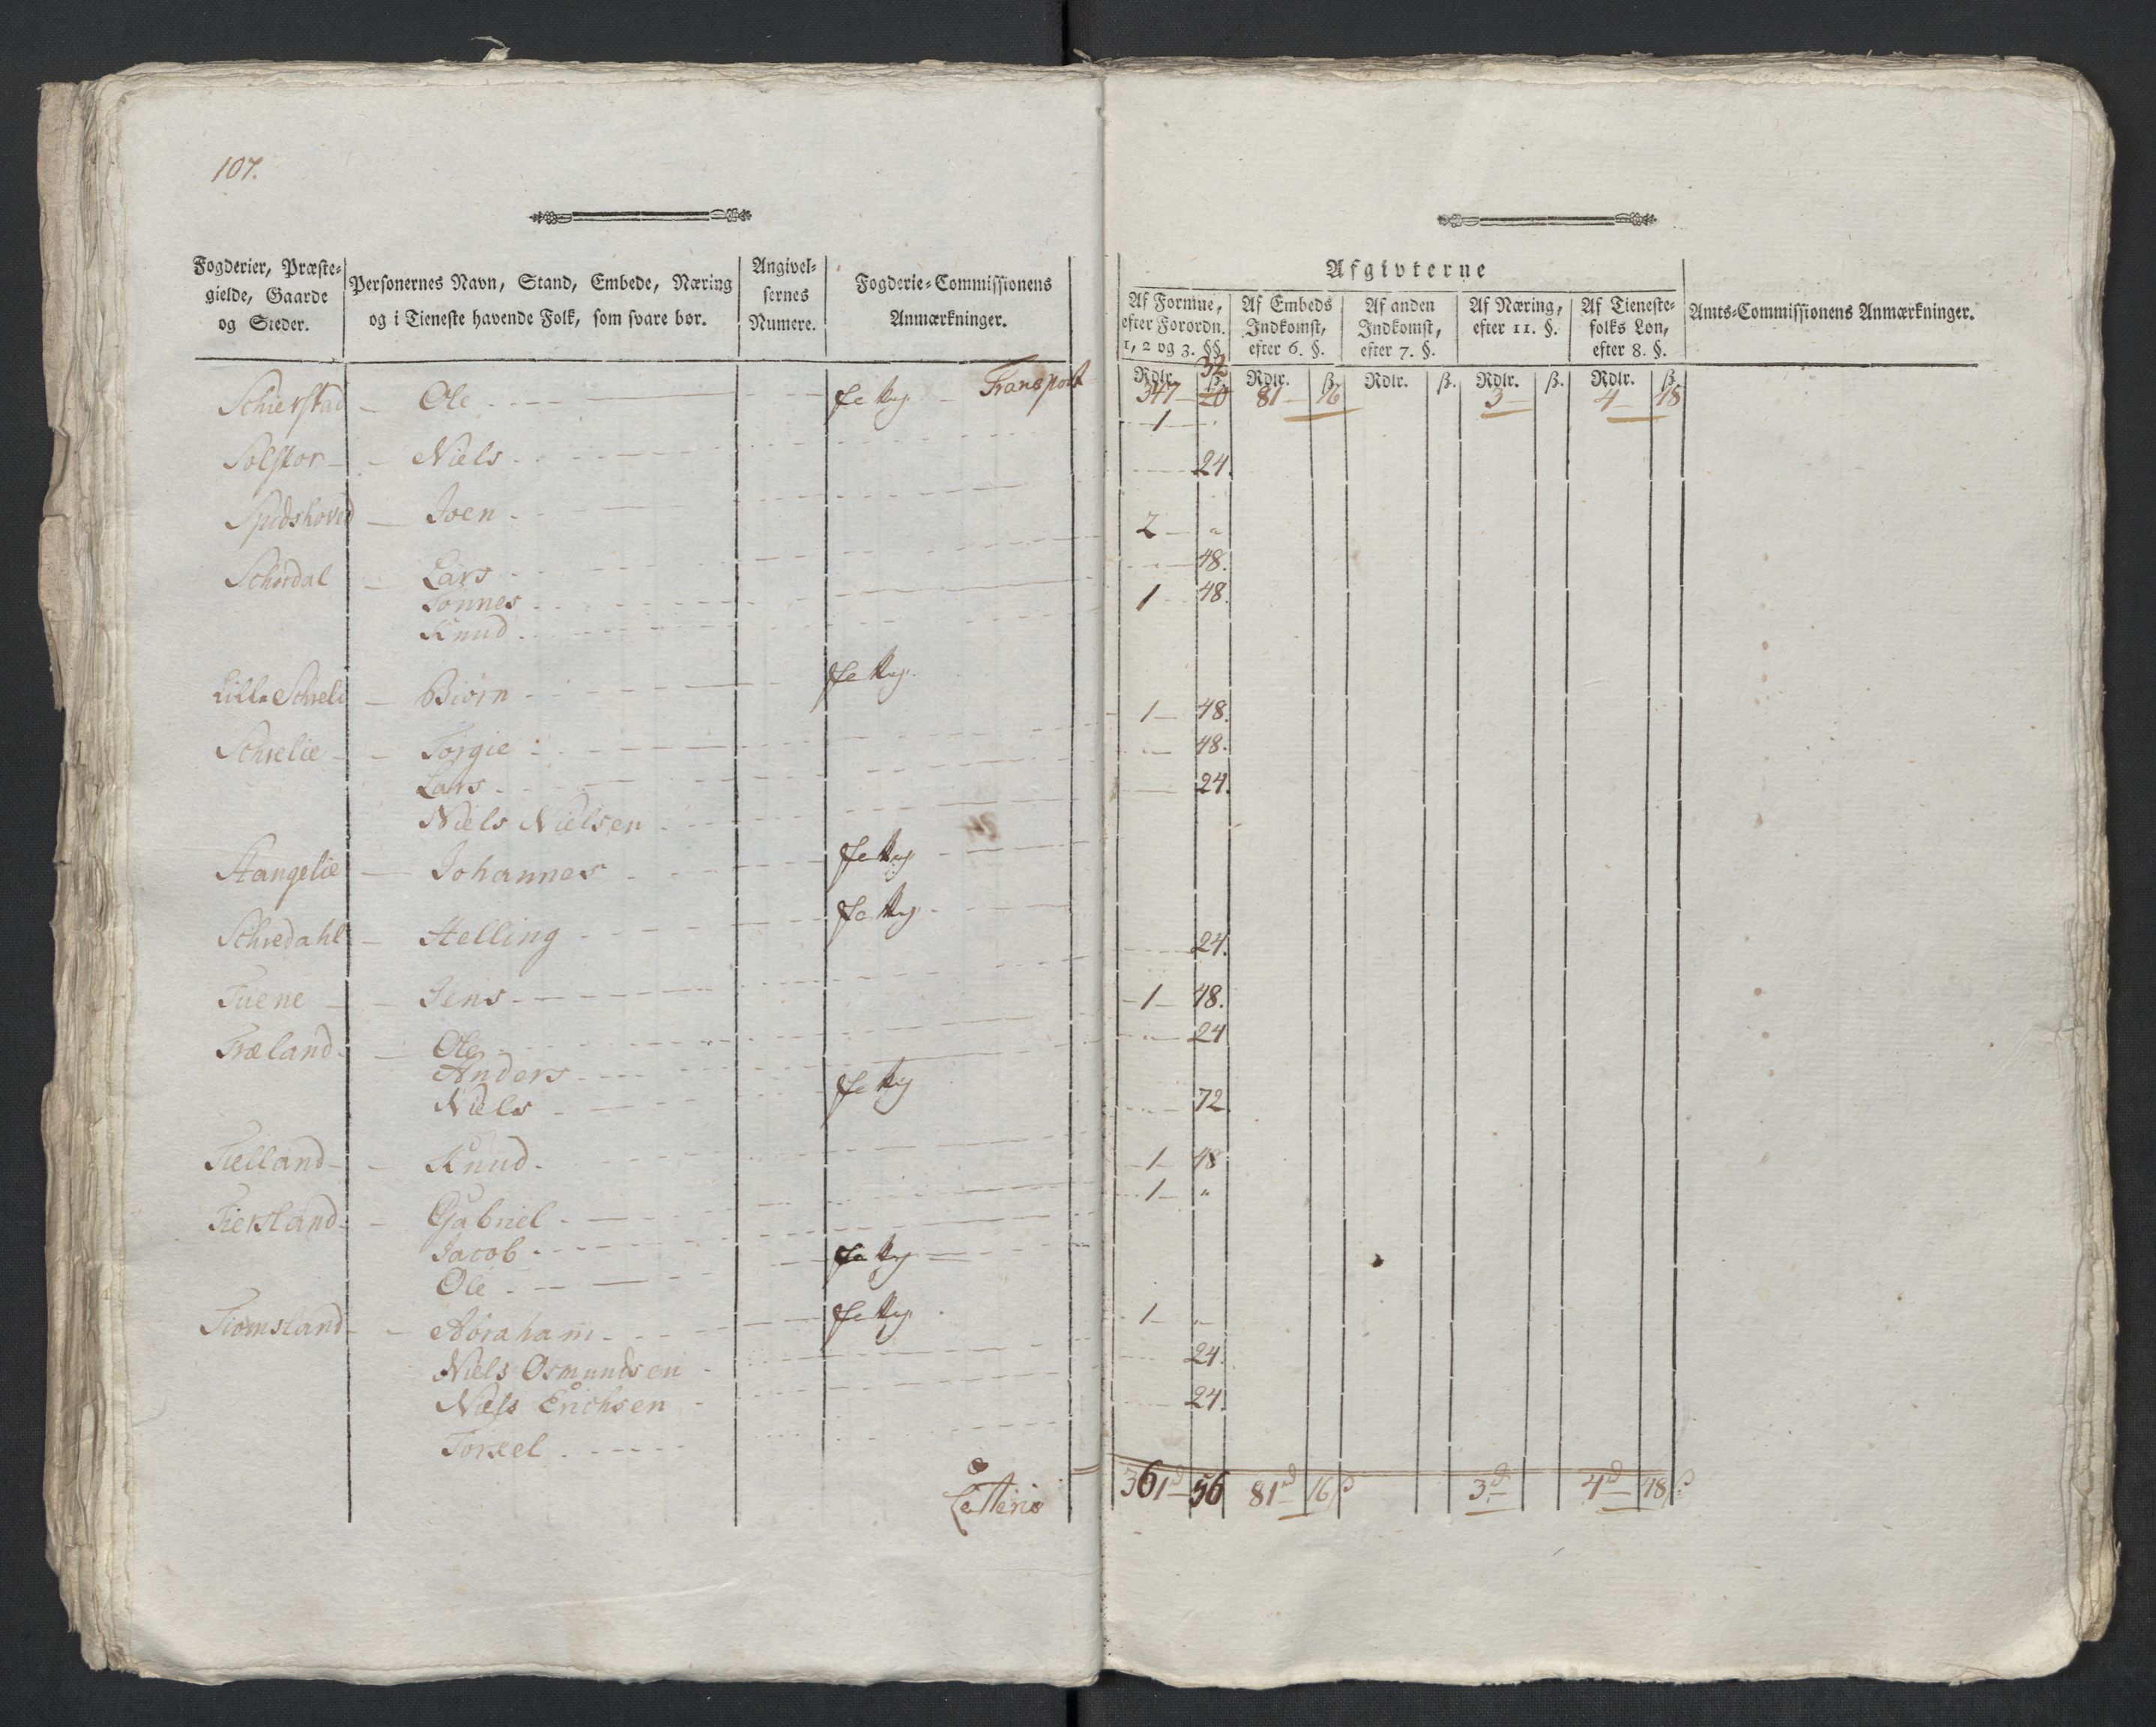 107.
Fogderier, Præste-
gielde, Gaarde
og Steder.
Personernes Navn, Stand, Embede, Næring
og i Tieneste havende Folk, som svare bør.
Angivel-
sernes
Numere.
Fogderie-Commissionens
Anmærkninger.
Afgivterne
Af Formue,
efter Forordn.
1, 2 og 3. §§.
Af Embeds
Indkomst,
efter 6. §.
Af anden
Indkomst,
efter 7. §.
Af Næring,
efter 11. §.
Af Tieneste-
folks Løn,
efter 8. §.
Amts-Commissionens Anmærkninger.
Rdlr. ß. Rdlr. ß. Rdlr. ß. Rdlr. ß. Rdlr. ß.
32
Transport 347 20 81 16 3 4 48
Schierstad Ole 1
Solskor Niels 24.
Spidshoved Joen 2 "
Schördal Lars 48.
Tönnes 1 48.
Knud
Lille Schreli Biörn 1 48.
Schrelie Torgie 48.
Lars 24.
Niels Nielsen
Stangelie Johannes
Schredahl Stelling 24.
Tuene Jens 1 48.
Træland Ole 24
Anders
Niels 72
Tielland Knud 1 48
Tiersland Gabriel 1 "
Jacob
Ole
Tiomsland Abraham 1
Niels Osmundsen 24.
Niels Erichsen 24.
Torkel
Latteris 361 56 81 16 ß 3 4 48 ß